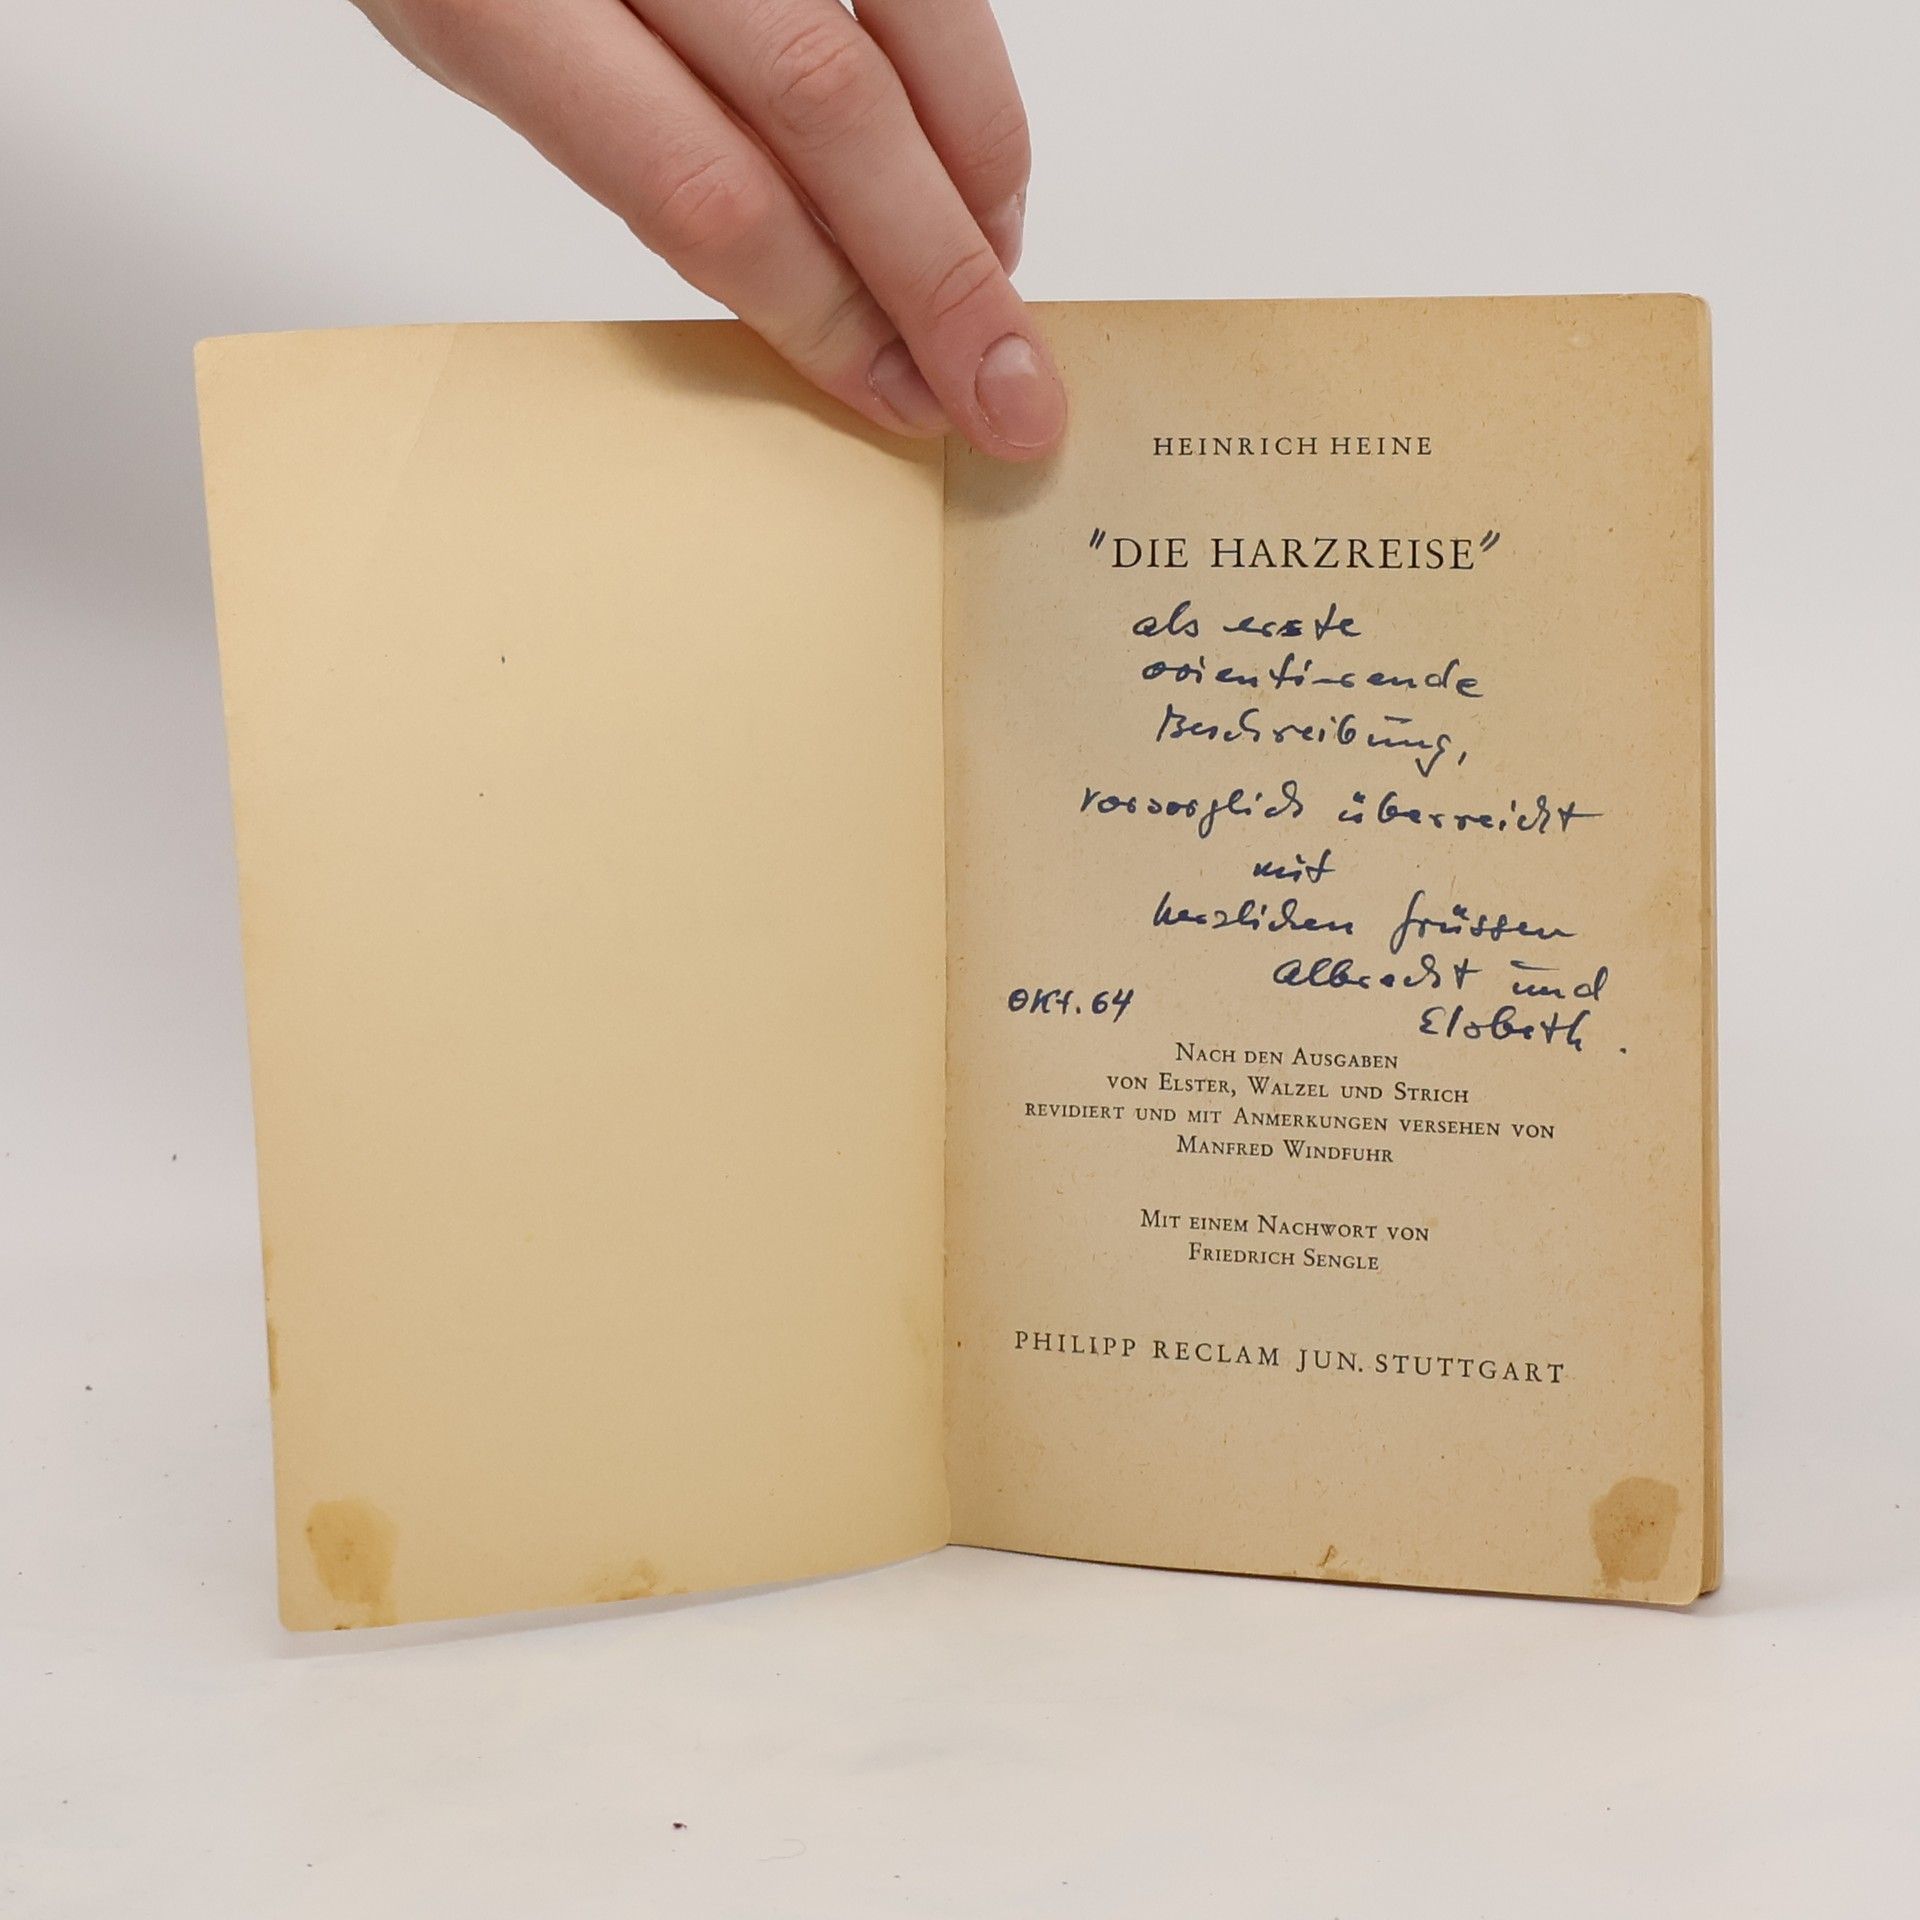 HEINRICH HEINE
"DIE HARZREISE"
als erste
orientierende
Beschreibung,
vorsorglich überreicht
mit
herzlichen Grüssen
Albrecht und
Elsbeth.
Okt. 64
NACH DEN AUSGABEN
VON ELSTER, WALZEL UND STRICH
REVIDIERT UND MIT ANMERKUNGEN VERSEHEN VON
MANFRED WINDFUHR
MIT EINEM NACHWORT VON
FRIEDRICH SENGLE
PHILIPP RECLAM JUN. STUTTGART